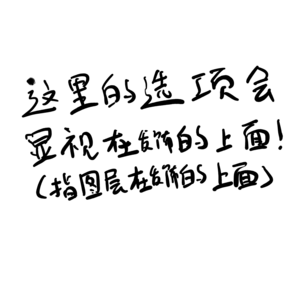 这里的选项会
显视在发饰的上面！
（指图层在发饰的上面）